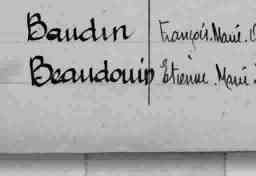 Baudin François. Marie.
Beaudouin Etienne. Marie